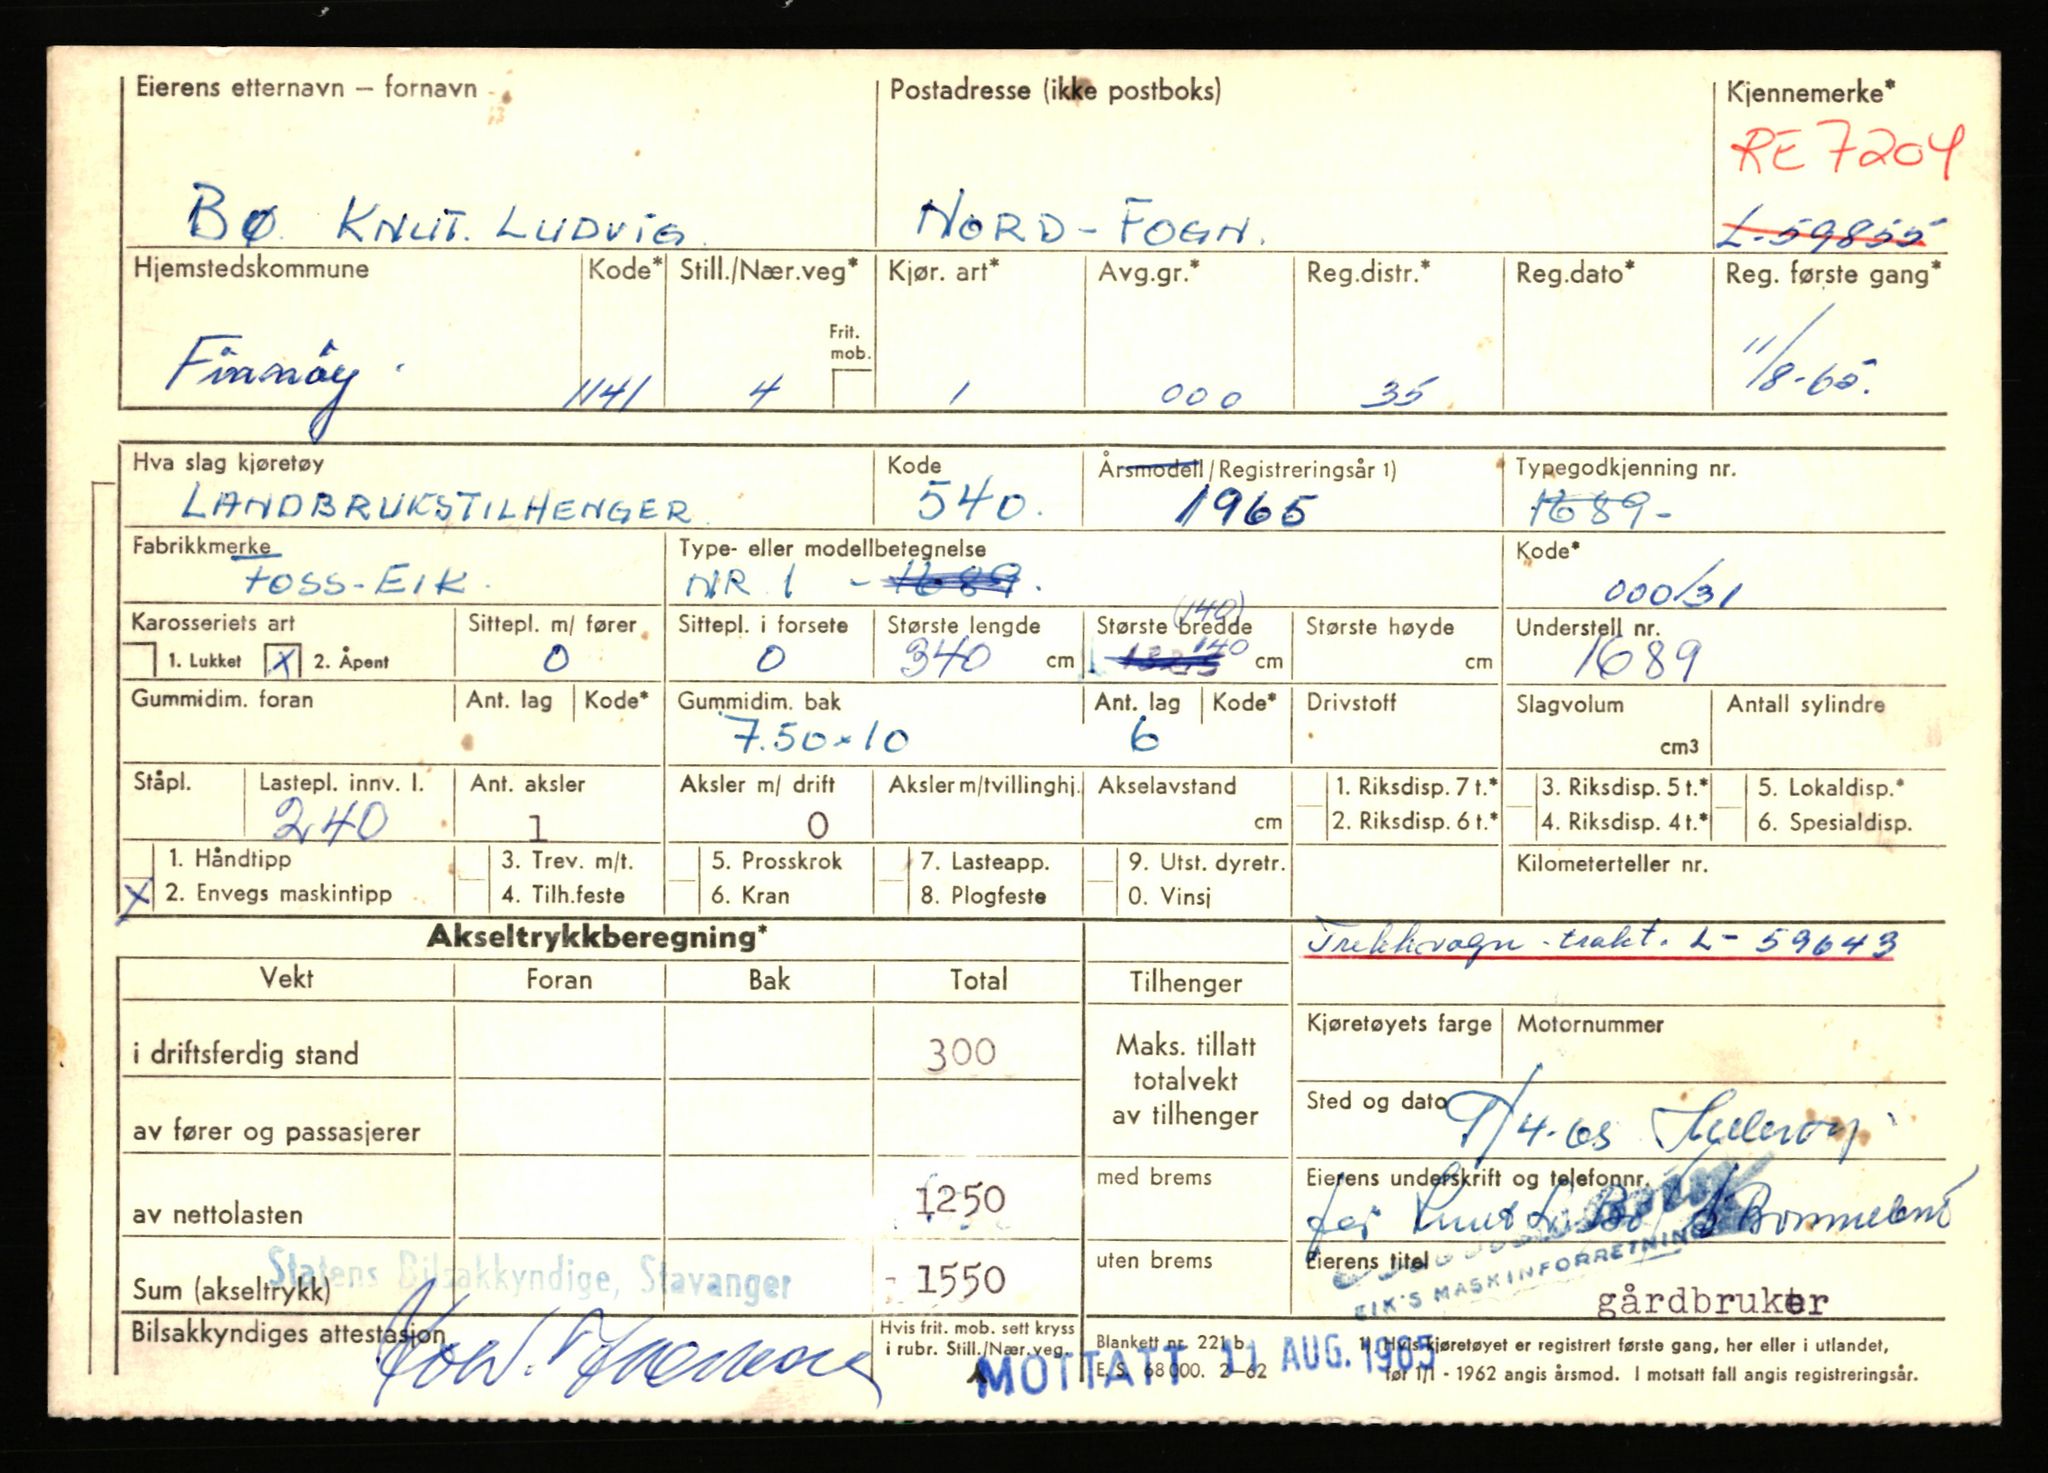 Eierens etternavn – fornavn
Postadresse (ikke postboks)
Kjennemerke*
RE 7204
BØ KNUT. LUDVIG.
NORD-FOGN.
L-59855
Hjemstedskommune
Kode*
Still./Nær.veg*
Kjør. art*
Avg.gr.*
Reg.distr.*
Reg.dato*
Reg. første gang*
Frit. mob.
Finnøy.
1141
4
1
000
35
11/8-65.
Hva slag kjøretøy
Kode
Årsmodell/Registreringsår 1)
Typegodkjenning nr.
LANDBRUKSTILHENGER
540.
1965
1689-
Fabrikkmerke
Type- eller modellbetegnelse
Kode*
FOSS-EIK.
NR 1 - 1689.
000/31
Karosseriets art
Sittepl. m/ fører
Sittepl. i forsete
Største lengde
Største bredde
(140)
Største høyde
Understell nr.
1. Lukket
X
2. Åpent
0
0
340 cm
140 cm
cm
1689
Gummidim. foran
Ant. lag
Kode*
Gummidim. bak
Ant. lag
Kode*
Drivstoff
Slagvolum
Antall sylindre
7.50x10
6
cm3
Ståpl.
Lastepl. innv. l.
Ant. aksler
Aksler m/ drift
Aksler m/tvillinghj.
Akselavstand
1. Riksdisp. 7 t.*
3. Riksdisp. 5 t.*
5. Lokaldisp.*
240
1
0
cm
2. Riksdisp. 6 t.*
4. Riksdisp. 4 t.*
6. Spesialdisp.
1. Håndtipp
3. Trev. m/t.
5. Prosskrok
7. Lasteapp.
9. Utst. dyretr.
Kilometerteller nr.
X
2. Envegs maskintipp
4. Tilh.feste
6. Kran
8. Plogfeste
0. Vinsj
Akseltrykkberegning*
Trekkvogn - trakt. L- 59643
Vekt
Foran
Bak
Total
Tilhenger
i driftsferdig stand
300
Maks. tillatt
totalvekt
av tilhenger
Kjøretøyets farge
Motornummer
av fører og passasjerer
Sted og dato
av nettolasten
1250
med brems
Eierens underskrift og telefonnr.
for Knut L. Bø
Statens Bilsakkyndige, Stavanger
Sum (akseltrykk)
1550
uten brems
Eierens titel
EIK'S MASKINFORRETNING
gårdbruker
Bilsakkyndiges attestasjon
Hvis frit. mob. sett kryss
i rubr. Still./Nær.veg.
Blankett nr. 221 b.
E. S. 68 000. 2–62
MOTTATT 11 AUG. 1965
1) Hvis kjøretøyet er registrert første gang, her eller i utlandet,
før 1/1 - 1962 angis årsmod. I motsatt fall angis registreringsår.